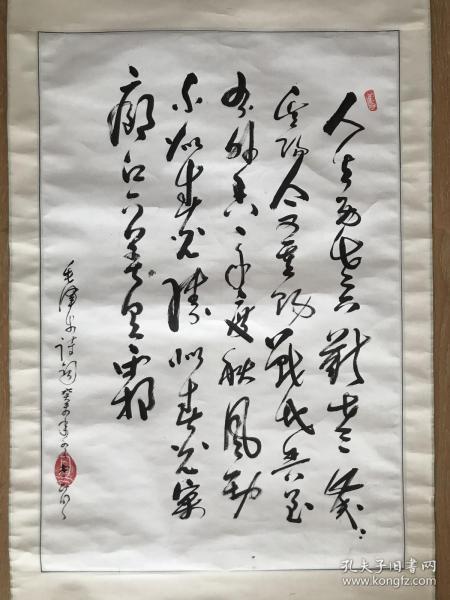 人生易老天難老歲々
重陽今又重陽戰地黄花
分外香一年一度秋風勁
不似春光勝似春光寥
廓江天萬里霜
毛澤东詩詞
孔夫子旧书网
www.kongfz.com